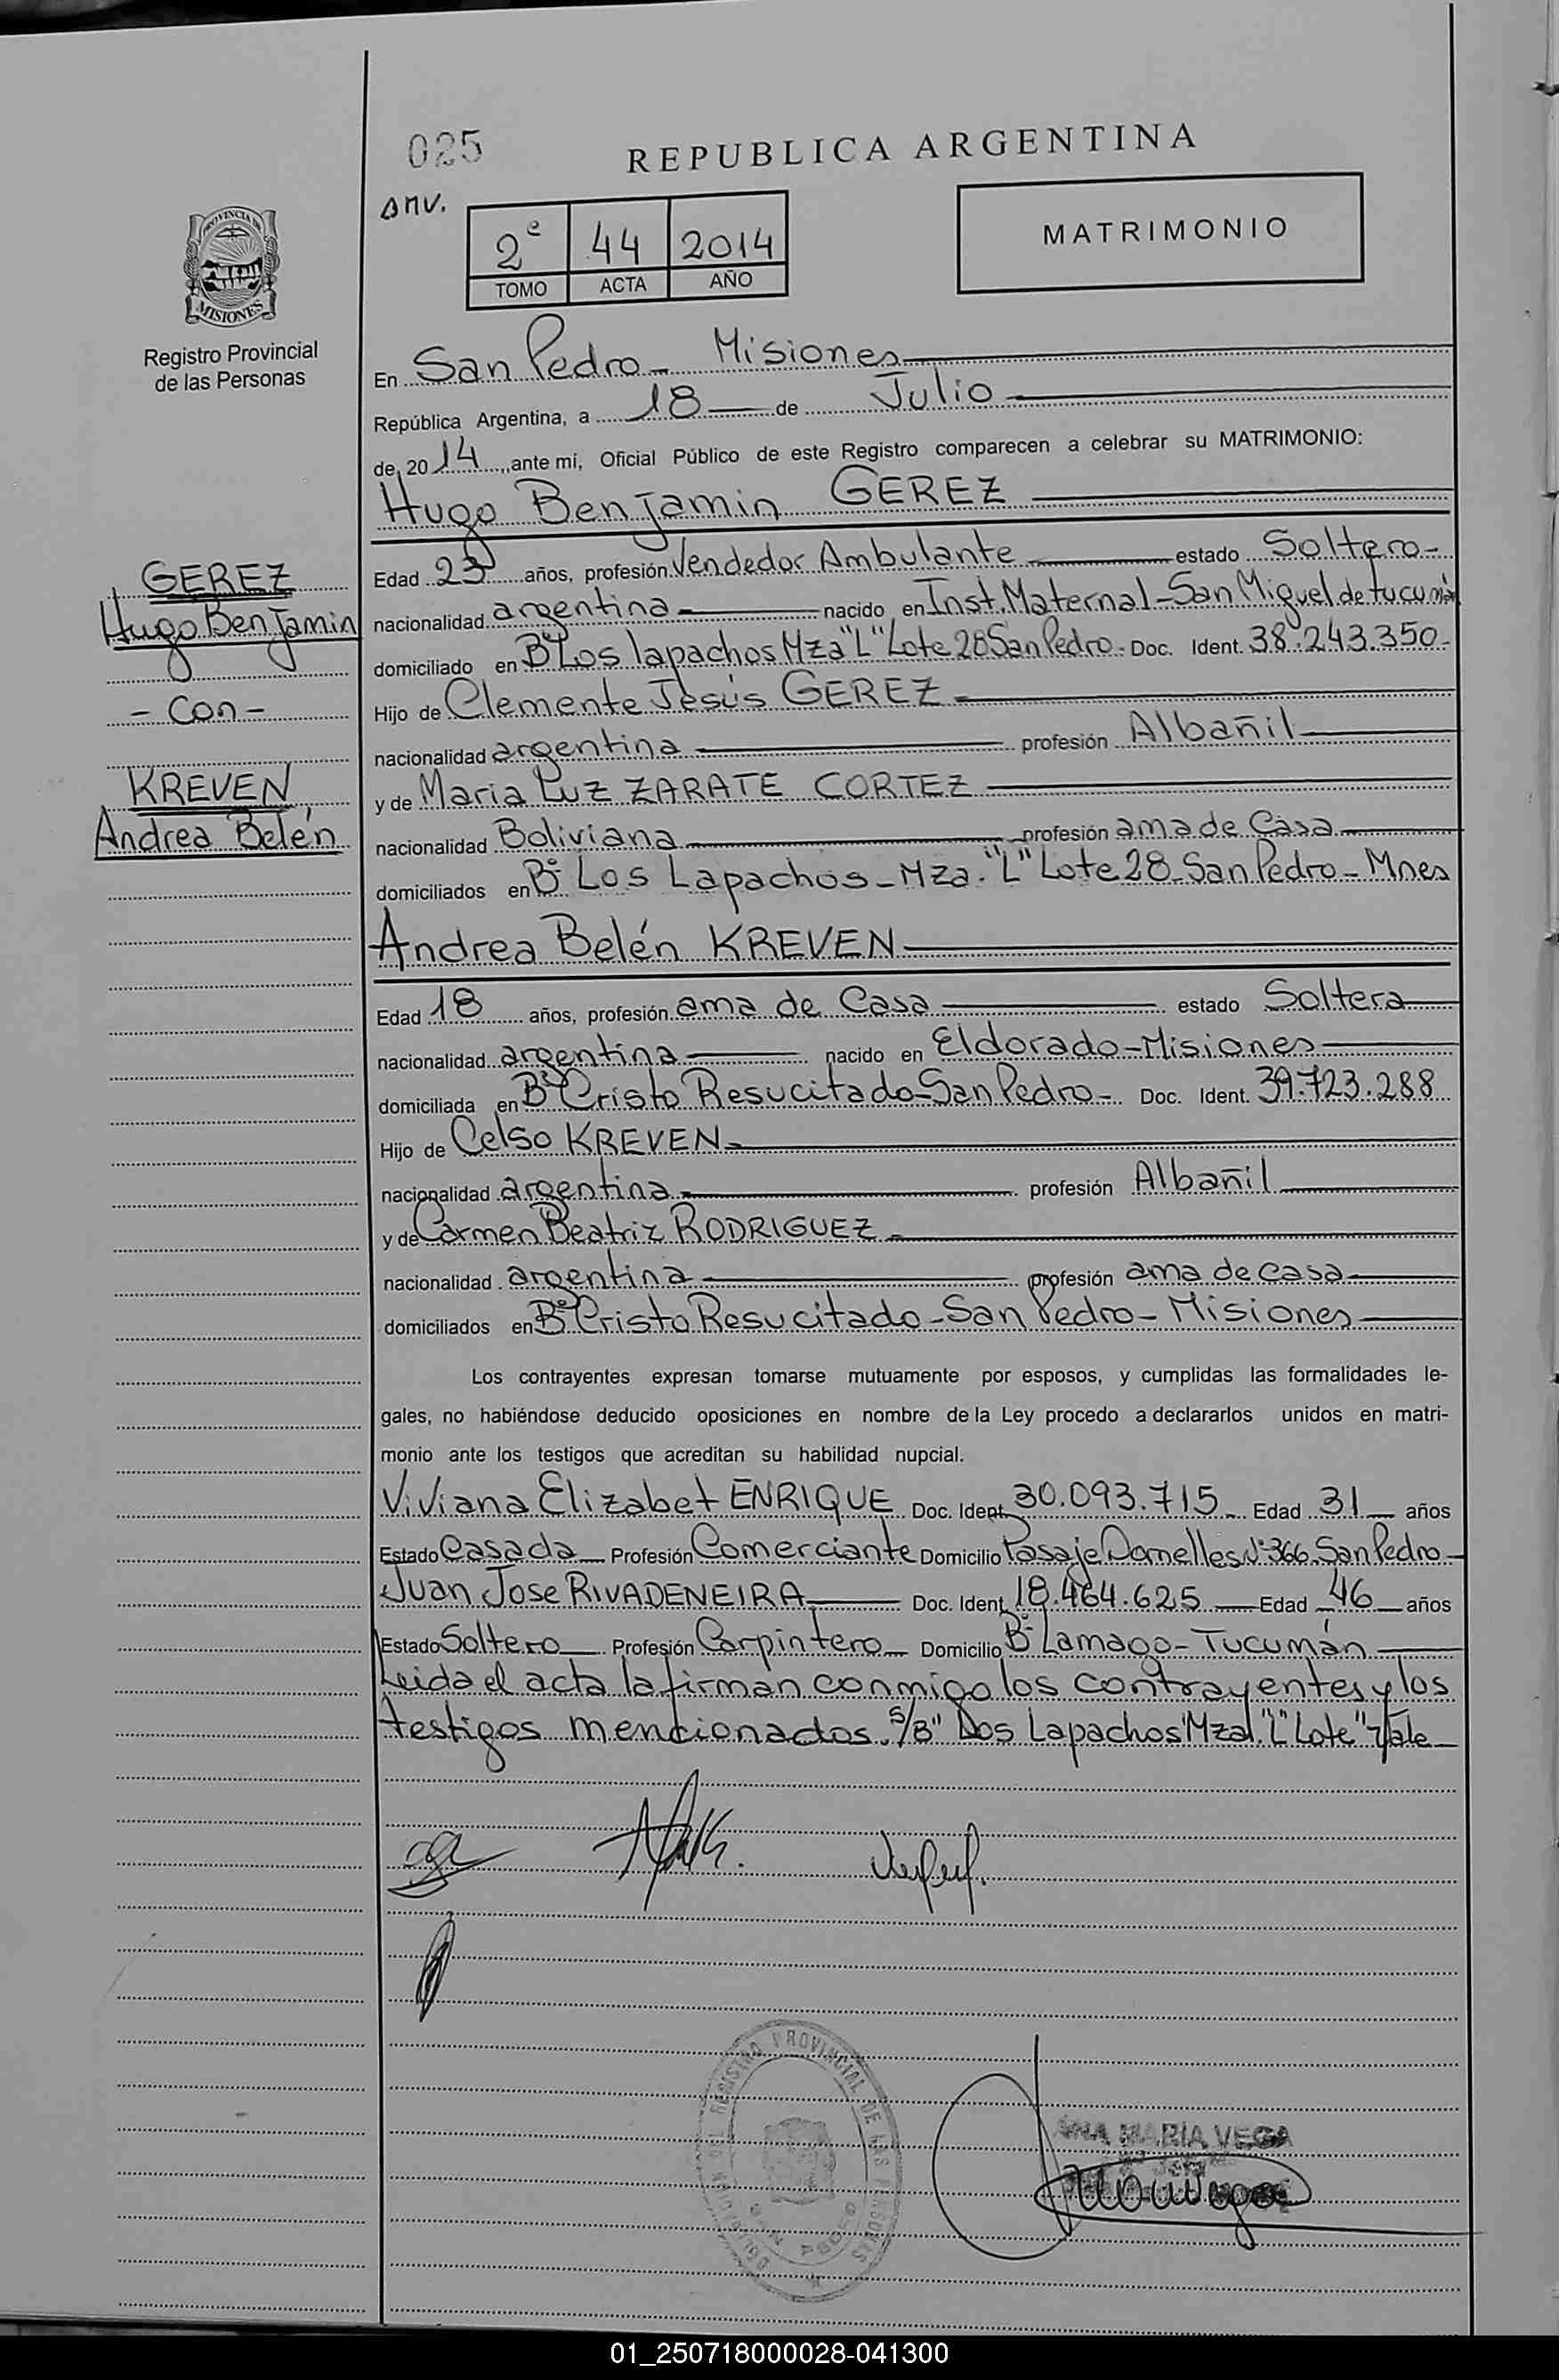 025
REPUBLICA ARGENTINA
amv.
2º 44 2014
TOMO ACTA AÑO
MATRIMONIO
PROVINCIA DE
MISIONES
Registro Provincial
de las Personas
En San Pedro - Misiones
República Argentina, a 18 de Julio
de 2014, ante mí, Oficial Público de este Registro comparecen a celebrar su MATRIMONIO:
Hugo Benjamin GEREZ
Edad 23 años, profesión Vendedor Ambulante estado Soltero -
nacionalidad argentina - nacido en Inst. Maternal - San Miguel de tucumán
domiciliado en Bº Los lapachos Mza "L" Lote 28 San Pedro - Doc. Ident. 38.243.350 -
Hijo de Clemente Jesús GEREZ -
nacionalidad argentina profesión Albañil
y de Maria Luz ZARATE CORTEZ
nacionalidad Boliviana profesión ama de Casa
domiciliados en Bº Los Lapachos - Mza. "L" Lote 28 - San Pedro - Mnes
Andrea Belén KREVEN
Edad 18 años, profesión ama de Casa estado Soltera
nacionalidad argentina nacido en Eldorado - Misiones
domiciliada en Bº Cristo Resucitado - San Pedro - Doc. Ident. 39.723.288
Hijo de Celso KREVEN -
nacionalidad argentina - profesión Albañil
y de Carmen Beatriz RODRIGUEZ -
nacionalidad argentina profesión ama de casa
domiciliados en Bº Cristo Resucitado - San Pedro - Misiones
Los contrayentes expresan tomarse mutuamente por esposos, y cumplidas las formalidades le-
gales, no habiéndose deducido oposiciones en nombre de la Ley procedo a declararlos unidos en matri-
monio ante los testigos que acreditan su habilidad nupcial.
Viviana Elizabet ENRIQUE Doc. Ident. 30.093.715 Edad 31 años
Estado Casada Profesión Comerciante Domicilio Pasaje Dornelles Nº 366. San Pedro -
Juan Jose RIVADENEIRA Doc. Ident. 18.464.625 Edad 46 años
Estado Soltero Profesión Carpintero Domicilio Bº Lamago - Tucumán
Leida el acta la firman conmigo los contrayentes y los
testigos mencionados. S/B" Los Lapachos Mza. "L" Lote" Vale
GEREZ
Hugo Benjamin
- Con -
KREVEN
Andrea Belén
REGISTRO PROVINCIAL DE LAS PERSONAS
SAN PEDRO
ANA MARIA VEGA
01_250718000028-041300